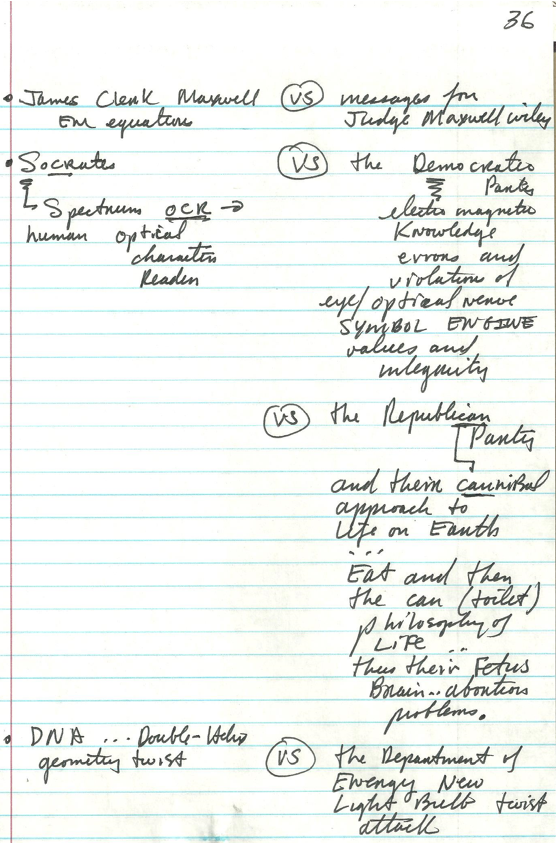 36
• James Clerk Maxwell (VS) messages for
EM equations Judge Maxwell Wiley
• Socrates (VS) the Democratic
Party
Spectrum OCR → electromagnetic
human optical Knowledge
character errors and
Reader violation of
eye/optical nerve
SYMBOL ENGINE
values and
integrity
(VS) the Republican
Party
and their cannibal
approach to
Life on Earth
...
Eat and then
the can (toilet)
philosophy of
LIFE ..
thus their Fetus
Brain.. abortion
problems.
• DNA ... Double-Helix (VS) the Department of
geometry twist Energy New
Light Bulb twist
attack